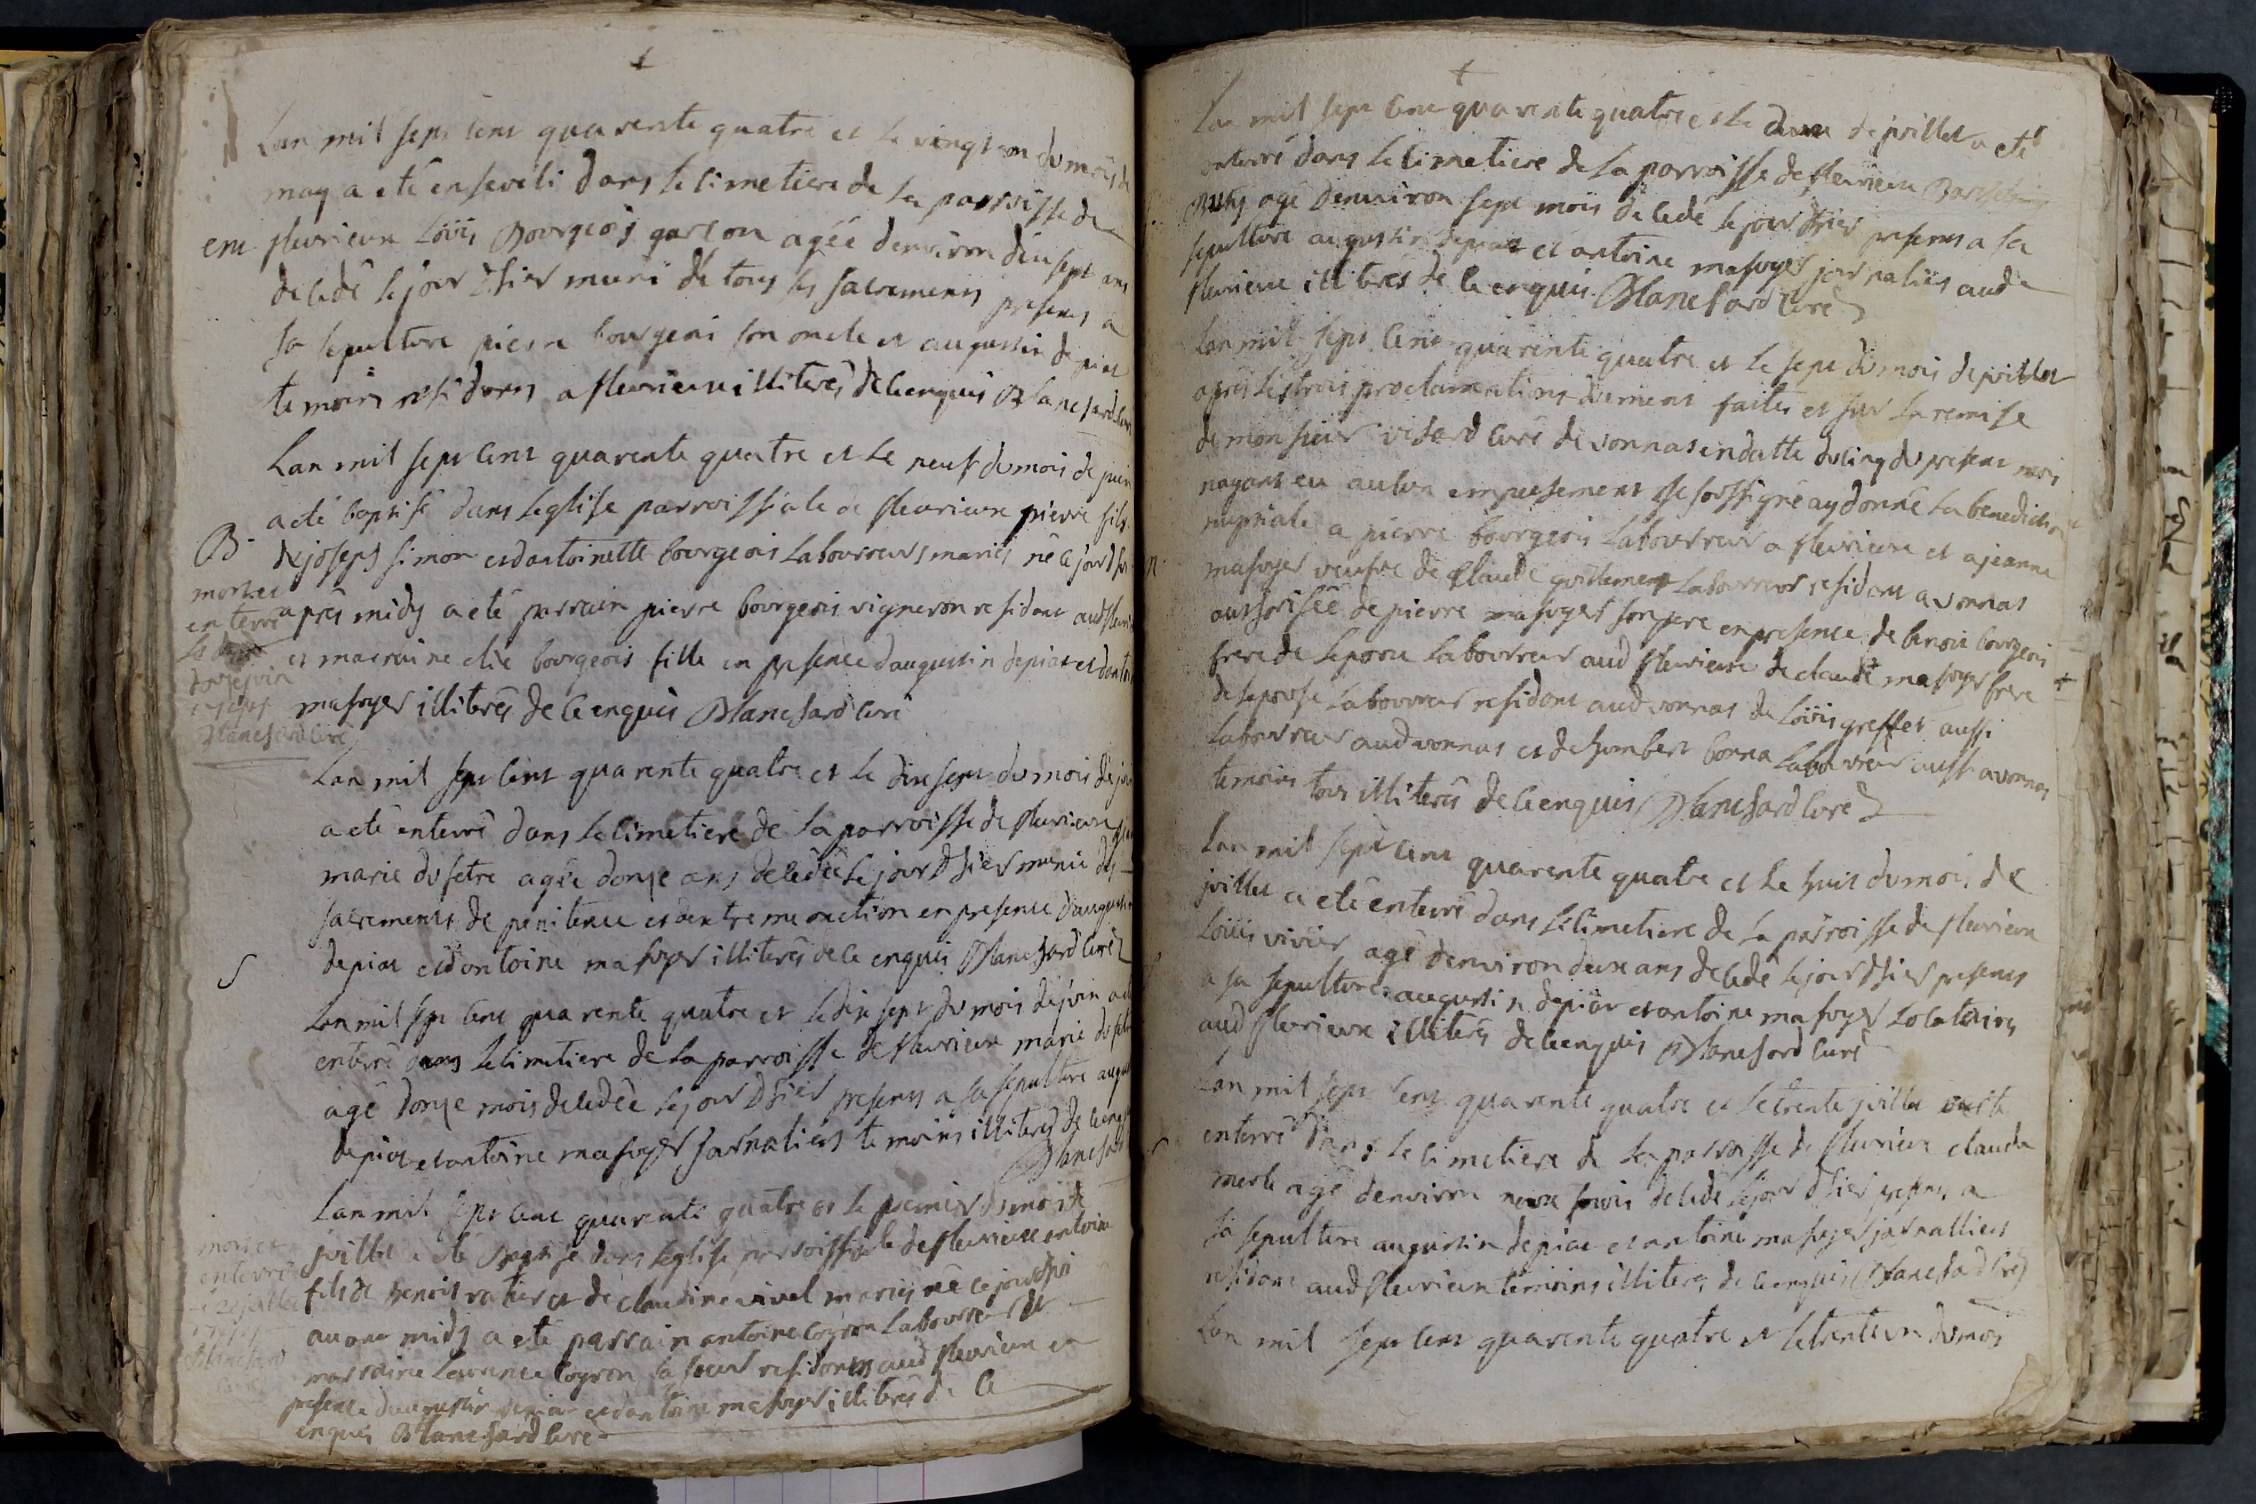 Lan mil sept cent quarente quatre et le vingt un du mois de
may a eté enseveli dans le cimetiere de la parroisse de
fleurieux Loüis Bourgeois garcon agéé denviron dix sept ans
decedé le jour dhier muni de tous les sacrements presents a
sa sepulture pierre bourgeois son oncle et augustin depiat
temoins residents a fleurieux illiterés de ce enquis Blanchard curé
Lan mil sept cent quarente quatre et le neuf du mois de juin
a eté baptisé dans leglise parroissiale de fleurieux pierre fils
B.
de joseph simon et dantoinette bourgeois laboureurs mariés né ce jourdhui
mort et
enterré
apres midy a eté parrain pierre bourgeois vigneron resident aud fleurieux
et marraine elie bourgeois fille en presence daugustin depiat et dantoine
masoyer illiterés de ce enquis Blanchard curé
Blanchard curé
Lan mil sept cent quarente quatre et le dix sept du mois de juin
a eté enterré dans le cimetiere de la parroisse de fleurieux
marie dufetre agéé donze ans decedéé le jour dhier munie des
sacrements de penitence et dextreme onction en presence daugustin
S
depiat et dantoine masoyer illiterés de ce enquis Blanchard curé
Lan mil sept cent quarente quatre et le dix sept du mois de juin a eté
enterré dans le cimetiere de la parroisse de fleurieux marie dufetre
agé donze mois decedéé le jour dhier presents a sa sepulture augustin
depiat et antoine masoyer journaliers temoins illiterés de ce enquis
Blanchard
Lan mil sept cent quarente quatre et le premier du mois de
juillet a eté baptisé dans leglise parroissiale de fleurieux antoine
mort et
enterré
fils de Benoit ratier et de claudine vivel mariés né ce jourdhui
avant midy a eté parrain antoine coyron laboureur et
marraine laurence coyron sa soeur residents aud fleurieux en
presence daugustin depiat et dantoine masoyer illiterés de ce
enquis Blanchard curé
Lan mil sept cent quarente quatre et le deux de juillet a eté
enterré dans le cimetiere de la parroisse de fleurieux
agé denviron sept mois decedé le jour dhier presents a sa
sepulture augustin depiat et antoine masoyer journaliers aud
fleurieux illiterés de ce enquis Blanchard curé
Lan mil sept cent quarente quatre et le sept du mois de juillet
apres les trois proclamations duement faites et sur la remise
de monsieur curé de vonnas en datte du cinq du present mois
nayant eu aucun empechement je soussigné ay donné la benediction
nuptiale a pierre bourgeois laboureur a fleurieux et a jeanne
masoyer veufve de claude guillement laboureur resident a vonnas
authorisée de pierre masoyer son pere en presence de benoit bourgeois
frere de lepoux laboureur aud fleurieux de claude masoyer frere
de lepouse laboureur resident aud vonnas de Loüis greffet aussi
laboureur aud vonnas et de humbert bonna laboureur aussi a vonnas
temoins tous illiterés de ce enquis Blanchard curé
Lan mil sept cent quarente quatre et le huit du mois de
juillet a eté enterré dans le cimetiere de la parroisse de fleurieux
Loüis vivier agé denviron deux ans decedé le jour dhier presents
a sa sepulture augustin depiat et antoine masoyer locataires
aud fleurieux illiterés de ce enquis Blanchard curé
Lan mil sept cent quarente quatre et le trente juillet a eté
enterré dans le cimetiere de la parroisse de fleurieux claude
merle agé denviron mois decedé le jour dhier presents a
sa sepulture augustin depiat et antoine masoyer journalliers
residents aud fleurieux temoins illiterés de ce enquis Blanchard curé
Lan mil sept cent quarente quatre et le trente un du mois